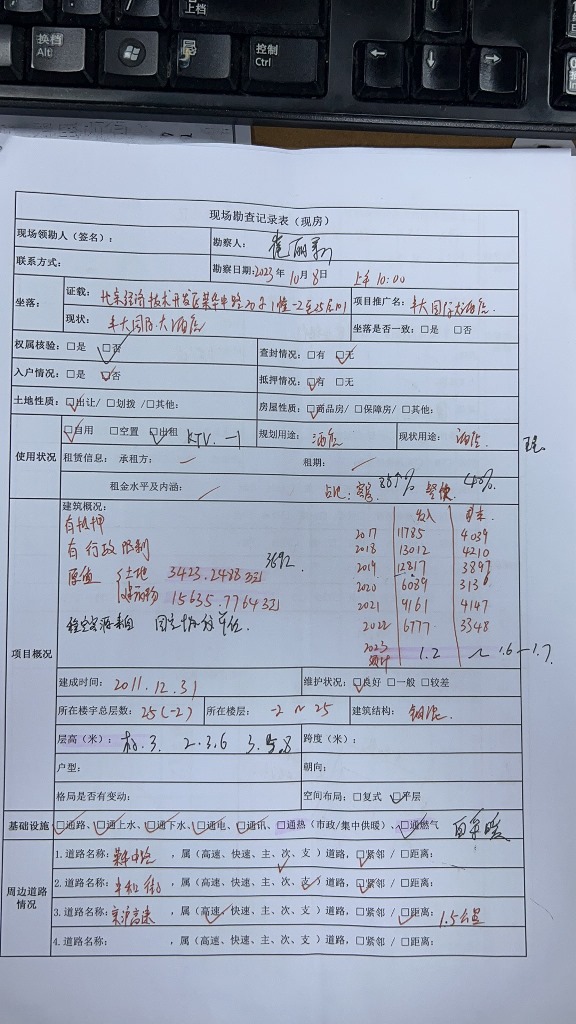 上档
换挡
Alt
控制
Ctrl
现场勘查记录表（现房）
现场领勘人（签名）：
勘察人：
联系方式：
勘察日期:2023年10月8日 上午10:00
坐落：
证载：北京经济技术开发区荣华中路 号1幢-2至25层101
项目推广名：丰大国际大酒店
现状：丰大国际大酒店
坐落是否一致：□是 □否
权属核验：□是 □否
查封情况：□有 □无
入户情况：□是 □否
抵押情况：□有 □无
土地性质：□出让/□划拨 /□其他:
房屋性质：□商品房/ □保障房/ □其他:
使用状况
□自用 □空置 □出租 KTV
规划用途：酒店
现状用途：酒店
租赁信息：承租方：
租期：
租金水平及内涵：
占比：客房 餐饮 40%
项目概况
建筑概况：
有抵押
有行政限制
原值
土地 3423.2488万
3692
建筑物 15635.7764万
收入
2017 11785 4039
2018 13012 4210
2019 12817 3897
2020 6089 313
2021 9161 4147
2022 6777 3348
2023 预计 1.2 ~ 1.6-1.7
建成时间：2011.12.31
维护状况：□良好 □一般 □较差
所在楼宇总层数：25(-2)
所在楼层：-2~25
建筑结构：钢混
层高（米）：标.3. 2-3.6 3.5.8
跨度（米）：
户型：
朝向：
格局是否有变动：
空间布局：□复式 □平层
基础设施
□通路、□通上水、□通下水、□通电、□通讯、□通热（市政/集中供暖）、□通燃气 自采暖
周边道路情况
1.道路名称：荣华中路，属（高速、快速、主、次、支）道路，□紧邻 /□距离:
2.道路名称：丰和街，属（高速、快速、主、次、支）道路，□紧邻 /□距离:
3.道路名称：京沪高速，属（高速、快速、主、次、支）道路，□紧邻 / □距离: 1.5公里
4.道路名称： ，属（高速、快速、主、次、支）道路，□紧邻 / □距离: